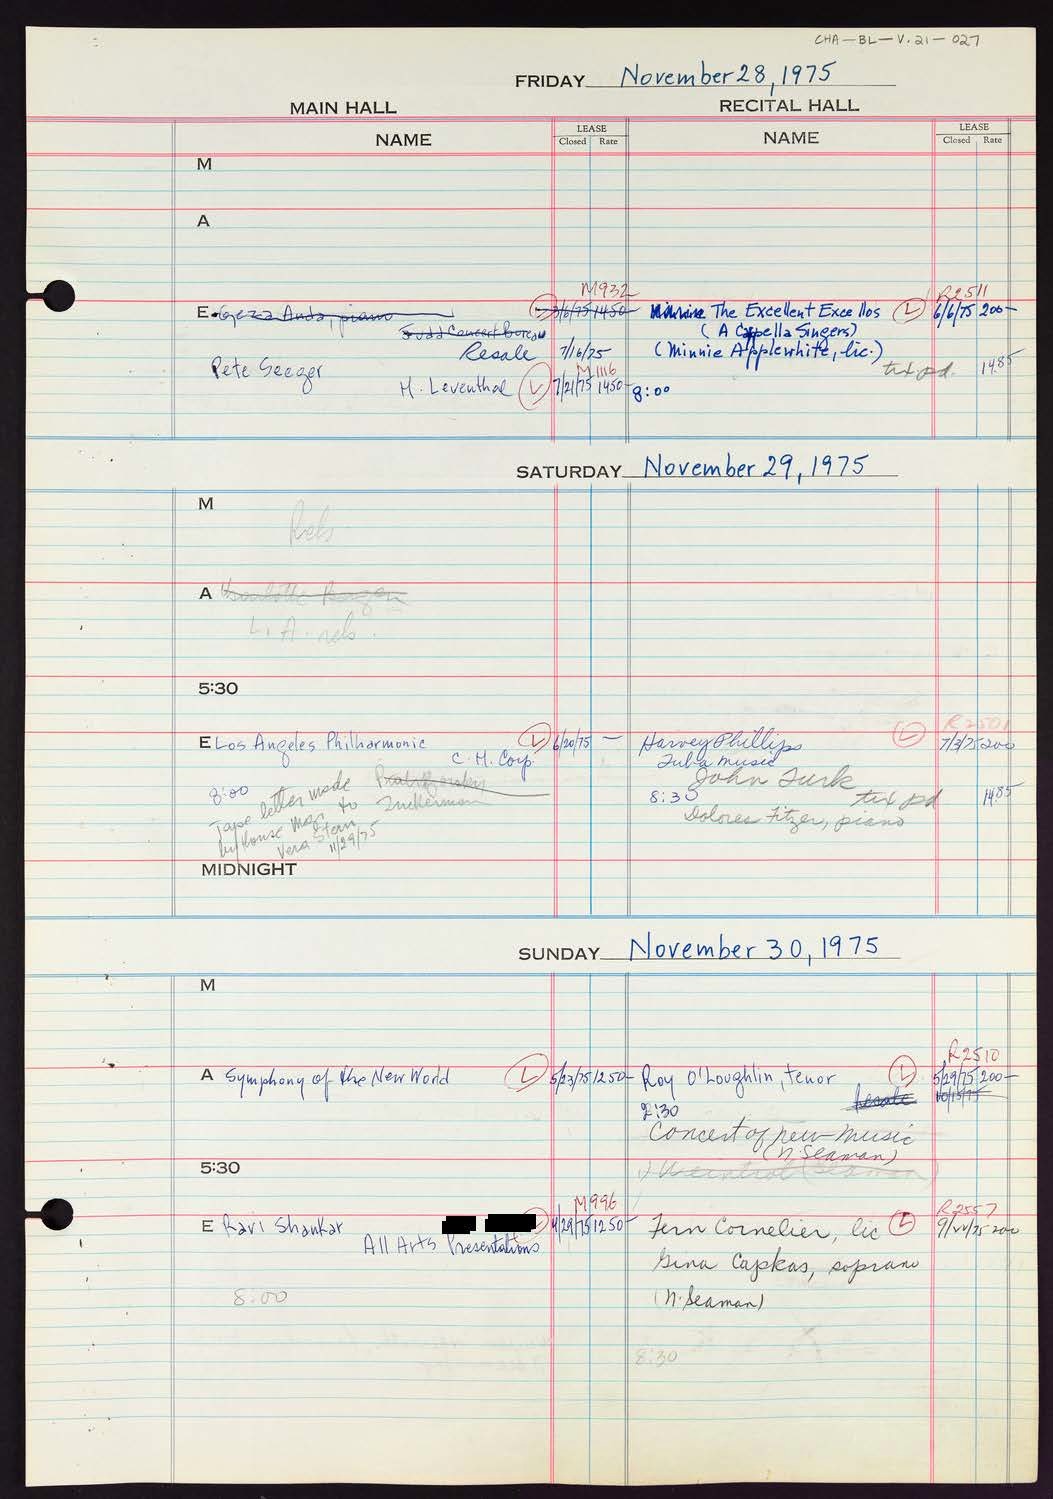 CHA-BL-V.21-027
FRIDAY November 28, 1975
MAIN HALL RECITAL HALL
NAME LEASE NAME LEASE
Closed Rate Closed Rate
M
A
M932 R2511
E Geza Anda, piano L 3/6/75 1450- The Excellent Excellos L 6/6/75 200-
Judd Concert Bureau (A Cappella Singers)
Resale 7/16/75 (Minnie Applewhite, lic.)
Pete Seeger M1116 tix pd. 1485
H. Leventhal L 7/21/75 1450- 8:00
SATURDAY November 29, 1975
M
Rels
A
L.A. reh.
5:30
R2501
E Los Angeles Philharmonic L 6/20/75 - Harvey Phillips L 7/3/75 200
C.H. Corp. Tuba music
John Turk
8:00 8:30 tix pd 1485
Tape letter made Zuckerman Dolores Fitzer, piano
by House Mgr. to
Vera Stern
11/29/75
MIDNIGHT
SUNDAY November 30, 1975
M
R2510
A Symphony of the New World L 5/23/75 1250- Roy O'Loughlin, tenor L 5/29/75 200-
2:30 Resale 10/15/75
Concert of new music
(N. Seaman)
5:30
M996 R2557
E Ravi Shankar 4/29/75 1250- Fern Cornelier, lic L
All Arts Presentations
Gina Capkas, soprano
8:00 (N. Seaman)
8:30